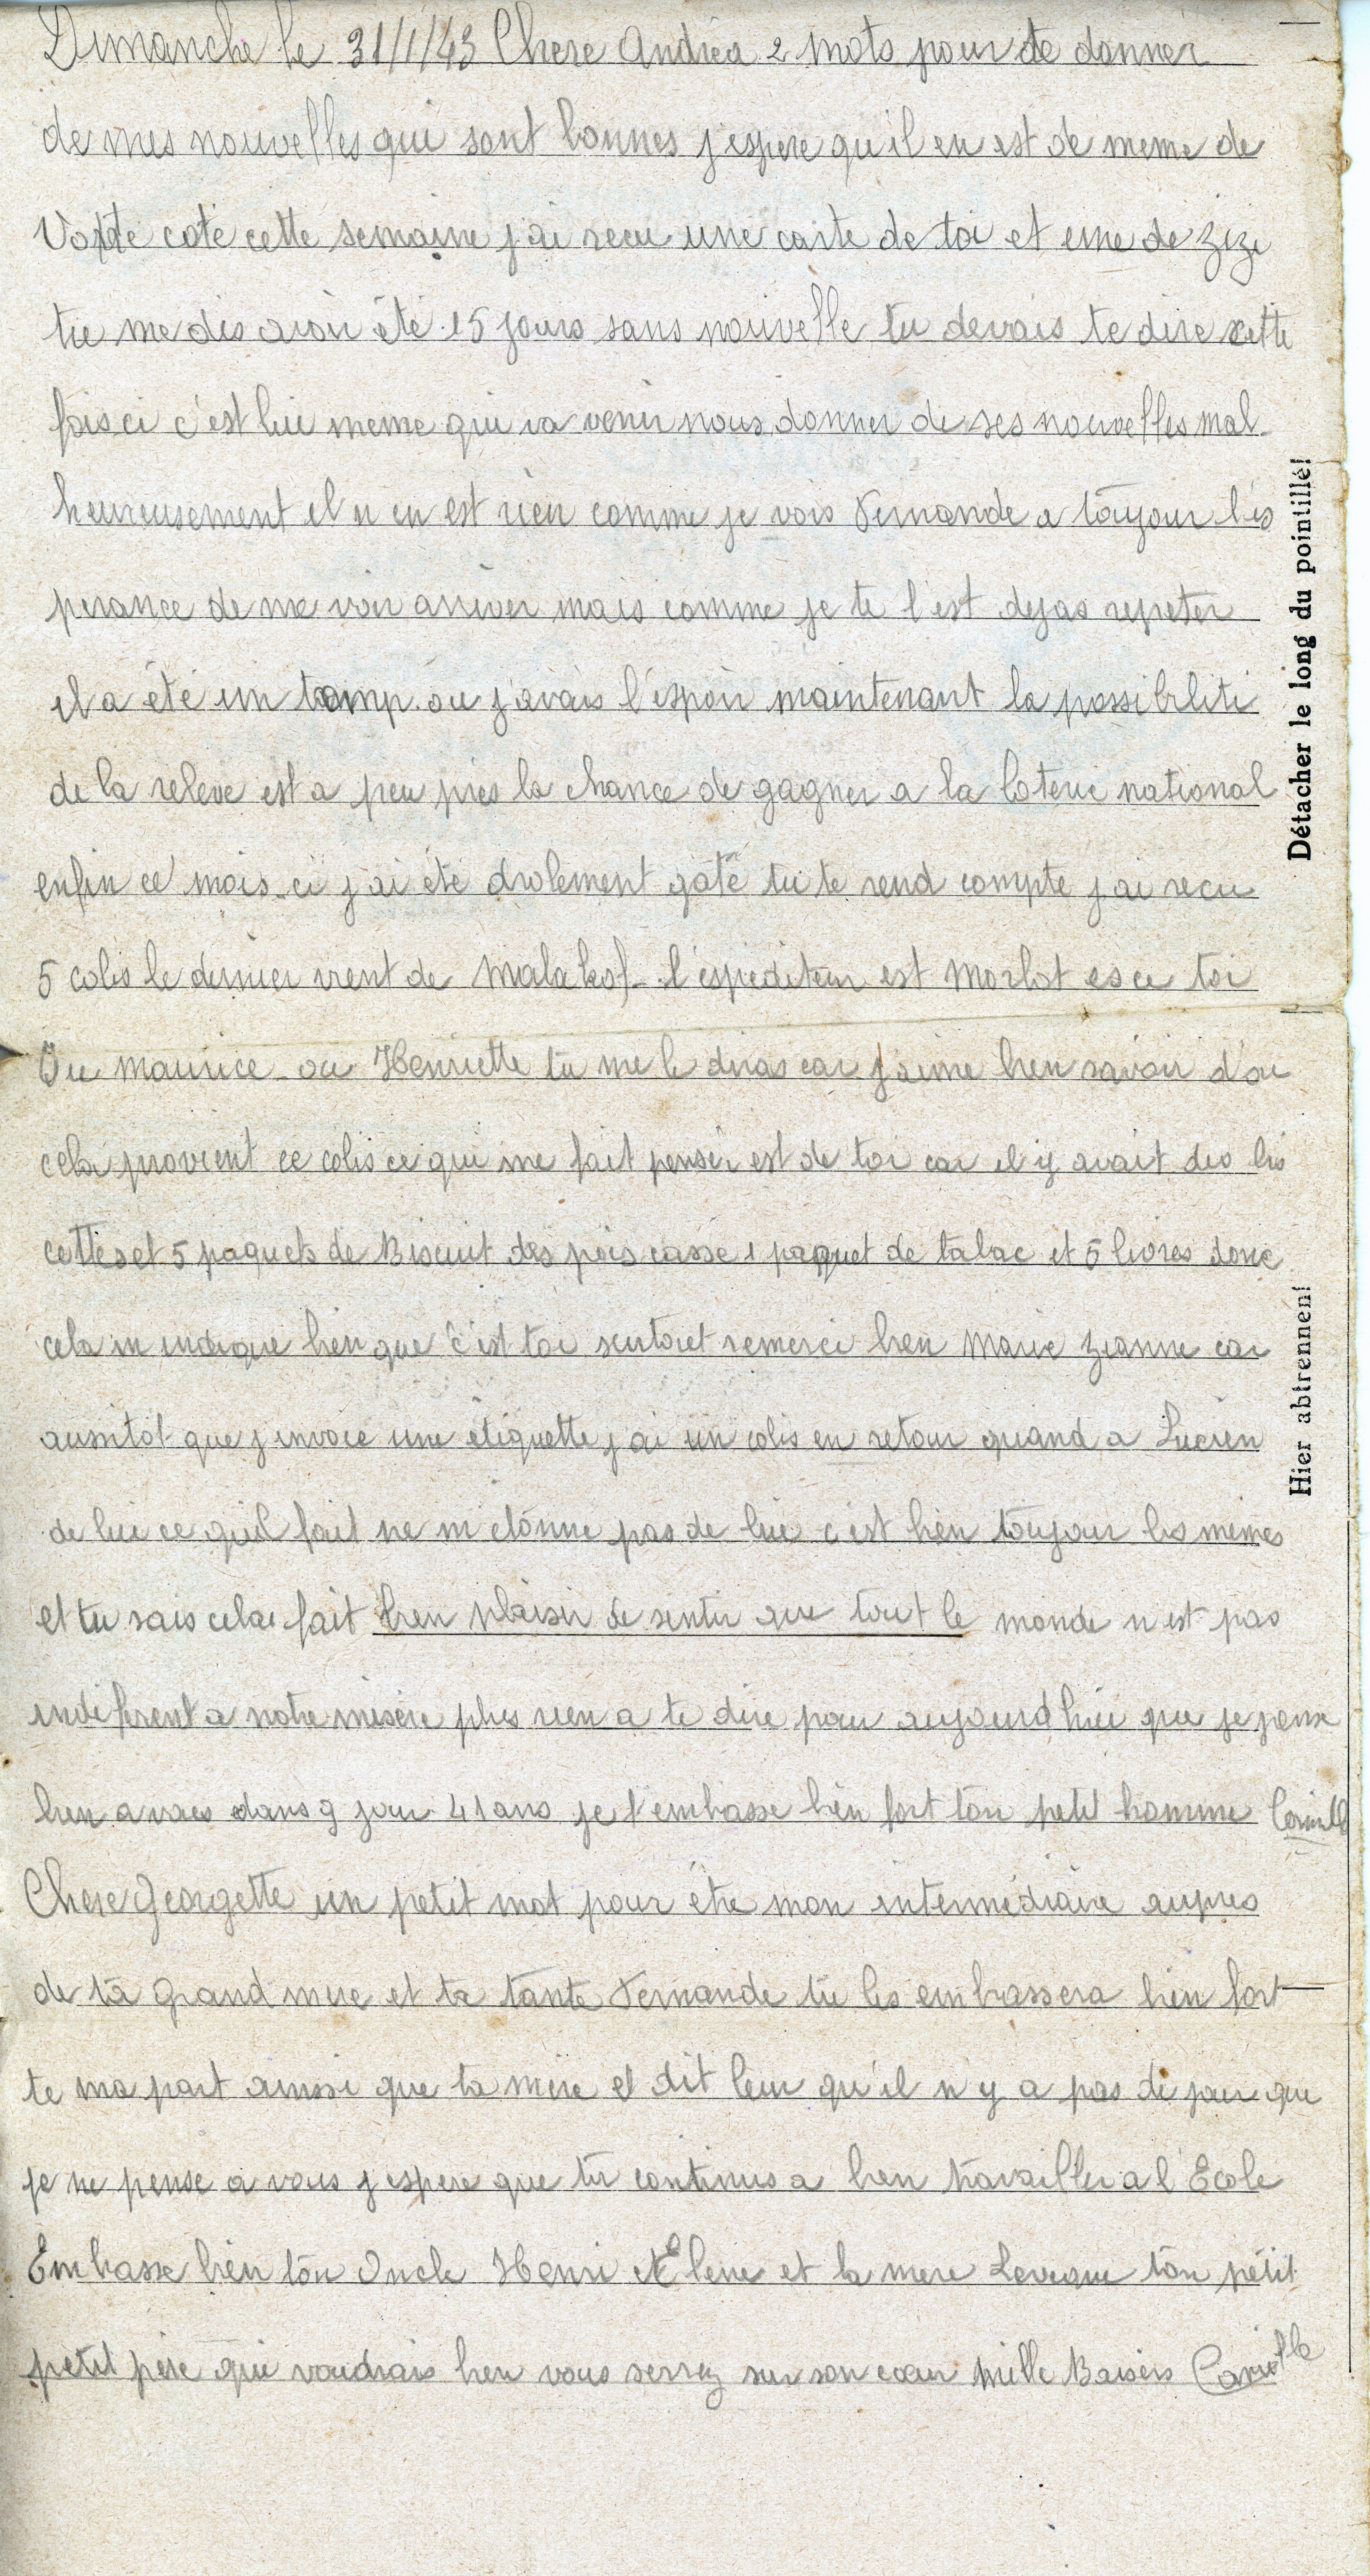 Dimanche le 31/1/43 Chere Andréa 2 mots pour te donner
de mes nouvelles qui sont bonnes j espere qu il en est de meme de
Votre coté cette semaine j ai recu une carte de toi et une de zizi
tu me dis avoir été 15 jours sans nouvelle tu devais te dire cette
fois ci c'est lui meme qui va venir nous donner de ses nouvelles mal
heureusement il n en est rien comme je vois Fernande a toujour l'es
perance de me voir arriver mais comme je te l est dejas repeter
il a été un tamp ou j'avais l'espoir maintenant la possibiliti
de la releve est a peu pres la chance de gagner a la loterie national
enfin ce mois-ci j ai été drolement gaté tu te rend compte j ai recu
5 colis le dernier vient de Malakof - l'espediteur est Morlot es ce toi
Ou maurice - ou Henriette tu me le diras car j'aime bien savoir d'ou
cela provient ce colis ce qui me fait penser est de toi car il y avait des bis
cottes et 5 paquets de Biscuit des pois casse 1 paquet de tabac et 5 livres donc
cela m indique bien que c'est toi surtout remerci bien Marie Jeanne car
aussitot que j envoie une étiquette j ai un colis en retour quand a Lucien
de lui ce quil fait ne m etonne pas de lui c est bien toujour les mêmes
et tu sais cela fait bien plaisir de sentir que tout le monde n est pas
indiferent a notre misère plus rien a te dire pour aujourd hui que je pense
bien a vous dans 9 jour 41 ans je t'embasse bien fort ton petit homme Camille
Chere Georgette un petit mot pour etre mon intermédiaire aupres
de ta Grand mere et ta tante Fernande tu les embrassera bien fort
te ma part aussi que ta mère et dit leur qu'il n y a pas de jour que
je ne pense a vous j espere que tu continus a bien travailler a l'Ecole
Embasse bien ton Oncle Henri et Elene et la mere Leveque ton petit
petit père qui voudrais bien vous serrez sur son coeur Mille Baisers Camille
Détacher le long du pointillé!
Hier abtrennen!